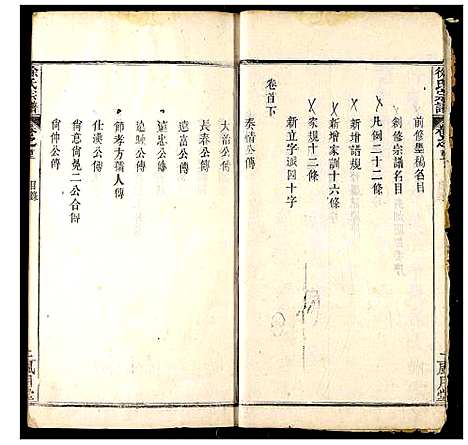 徐氏宗譜
前修墨稿名目
創修宗譜名目
凡例二十二條
新增譜規
新增家訓十六條
家規十二條
新立字派四十字
卷首下
奏精公傳
大浩公傳
長春公傳
遠富公傳
遠忠公傳
遠睦公傳
節孝方孺人傳
仕漢公傳
尙意尙免二公合傳
尙仲公傳
徐氏宗譜
目錄